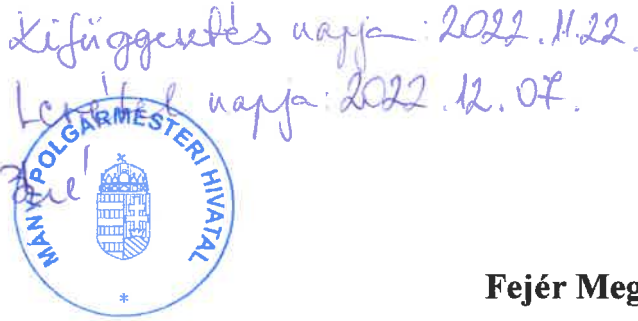 Kifüggesztés napja: 2022.11.22.
Levétel napja: 2022.12.07.
MÁNY POLGÁRMESTERI HIVATAL
*
Fejér Meg